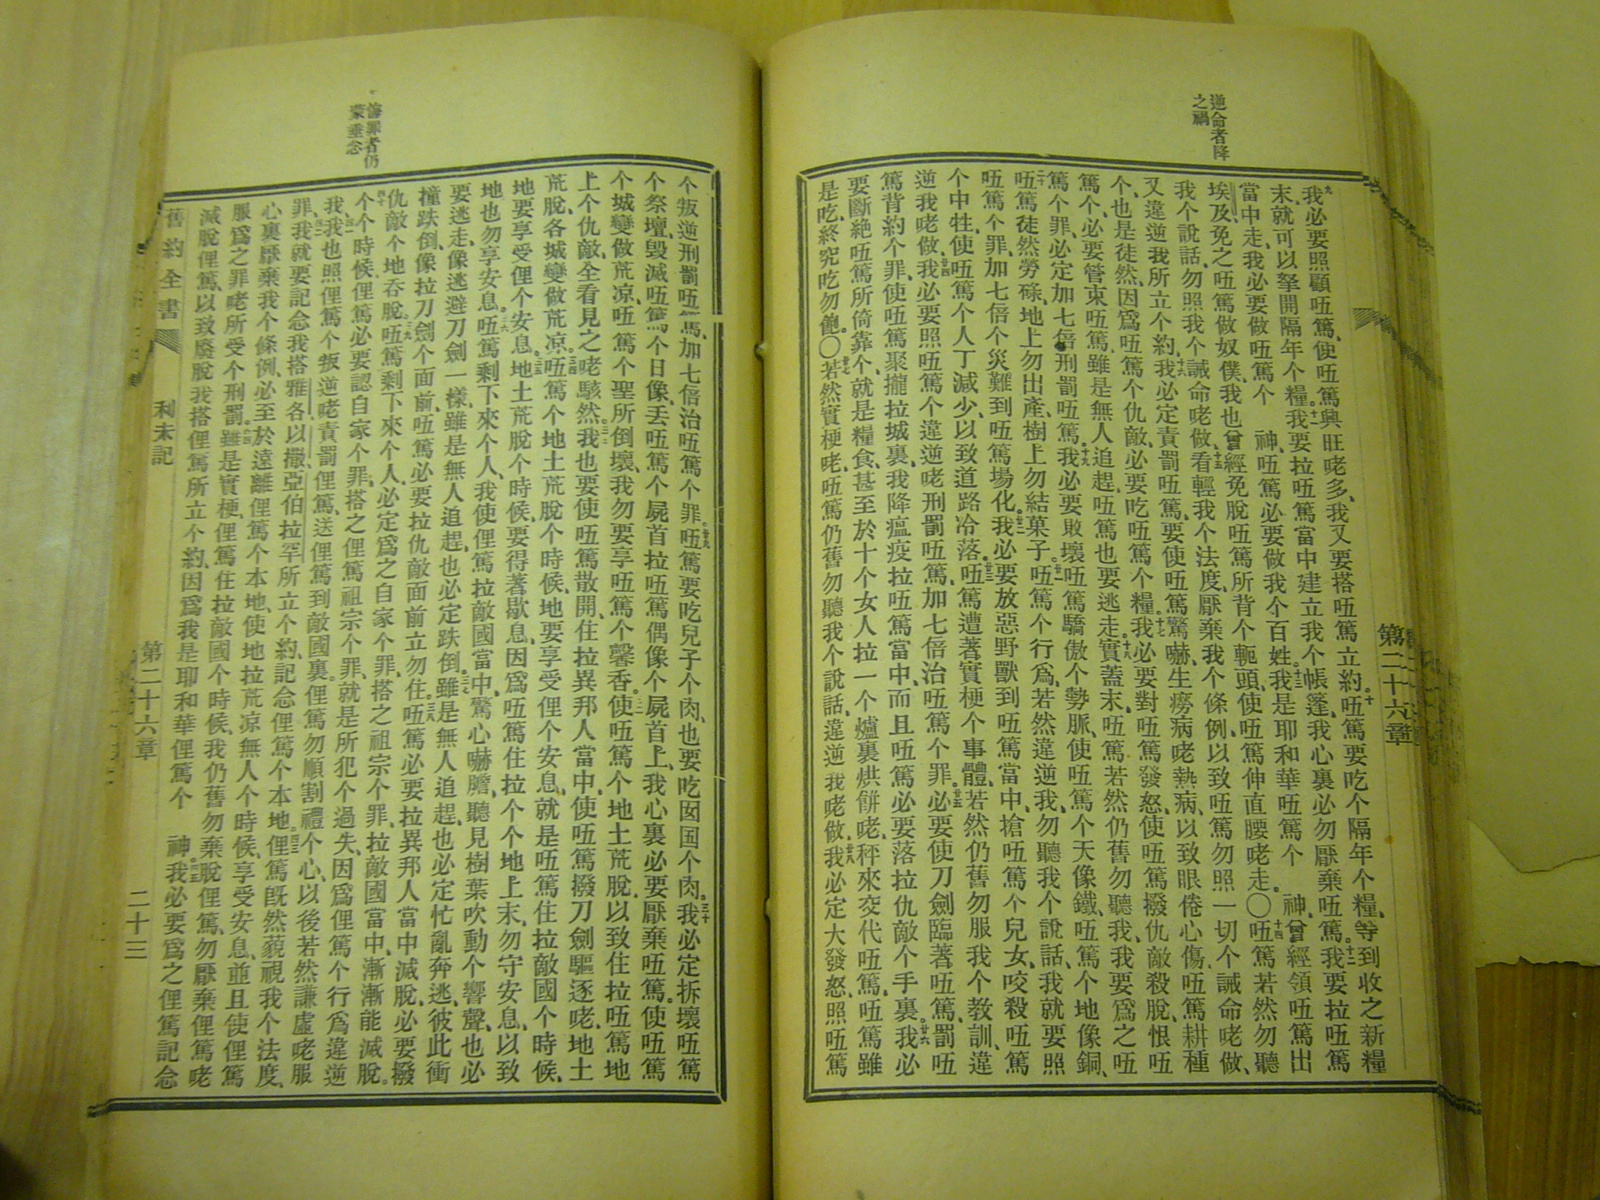 逆命者降
之禍
第二十六章
九我必要照顧㕶篤、使㕶篤興旺咾多、我又要搭㕶篤立約。十㕶篤要吃个隔年个糧、等到收之新糧
末、就可以拏開隔年个糧。十一我要拉㕶篤當中建立我个帳篷、我心裏必勿厭棄㕶篤。十二我要拉㕶篤
當中走、我必要做㕶篤个 神、㕶篤必要做我个百姓。十三我是耶和華㕶篤个 神、曾經領㕶篤出
埃及、免之㕶篤做奴僕、我也曾經免脫㕶篤所背个軛頭、使㕶篤伸直腰咾走。〇十四㕶篤若然勿聽
我个說話、勿照我个誡命咾做、十五看輕我个法度、厭棄我个條例、以致㕶篤勿照一切个誡命咾做、
又違逆我所立个約、十六我必定責罰㕶篤、要使㕶篤驚嚇、生癆病咾熱病、以致眼倦心傷、㕶篤耕種
个、也是徒然、因爲㕶篤个仇敵、必要吃㕶篤个糧。十七我必要對㕶篤發怒、使㕶篤撥仇敵殺脫、恨㕶
篤个、必要管束㕶篤、雖是無人追趕、㕶篤也要逃走。十八實蓋末、㕶篤若然仍舊勿聽我、我要爲之㕶
篤个罪、必定加七倍刑罰㕶篤。十九我必要敗壞㕶篤驕傲个勢脈、使㕶篤个天像鐵、㕶篤个地像銅、
二十㕶篤徒然勞碌、地上勿出產、樹上勿結菓子。廿一㕶篤个行爲、若然違逆我、勿聽我个說話、我就要照
㕶篤个罪、加七倍个災難到㕶篤場化。廿二我必要放惡野獸到㕶篤當中、搶㕶篤个兒女、咬殺㕶篤
个中牲、使㕶篤个人丁減少、以致道路冷落。廿三㕶篤遭著實梗个事體、若然仍舊勿服我个教訓、違
逆我咾做、廿四我必要照㕶篤个違逆咾刑罰㕶篤、加七倍治㕶篤个罪。廿五必要使刀劍臨著㕶篤、罰㕶
篤背約个罪、使㕶篤聚攏拉城裏、我降瘟疫拉㕶篤當中、而且㕶篤必要落拉仇敵个手裏。廿六我必
要斷絕㕶篤所倚靠个、就是糧食、甚至於十个女人拉一个爐裏烘餅咾、秤來交代㕶篤、㕶篤雖
是吃、終究吃勿飽。〇廿七若然實梗咾、㕶篤仍舊勿聽我个說話、違逆我咾做、廿八我必定大發怒、照㕶篤
悔罪者仍
蒙垂念
个叛逆刑罰㕶篤、加七倍治㕶篤个罪。廿九㕶篤要吃兒子个肉、也要吃囡囝个肉。三十我必定拆壞㕶篤
个祭壇、毀滅㕶篤个日像、丟㕶篤个屍首拉㕶篤偶像个屍首上、我心裏必要厭棄㕶篤。使㕶篤
个城變做荒凉、㕶篤个聖所倒壞、我勿要享㕶篤个馨香。使㕶篤个地土荒脫、以致住拉㕶篤地
上个仇敵、全看見之咾駭然。我也要使㕶篤散開、住拉異邦人當中、使㕶篤撥刀劍驅逐咾、地土
荒脫、各城變做荒凉。三四㕶篤个地土荒脫个時候、地要享受俚个安息、就是㕶篤住拉敵國个時候、
地要享受俚个安息。三五地土荒脫个時候、要得著歇息、因爲㕶篤住拉个个地上末、勿守安息、以致
地也勿享安息。三六㕶篤剩下來个人、我使俚篤拉敵國當中、驚心嚇膽、聽見樹葉吹動个響聲、也必
要逃走、像逃避刀劍一樣、雖是無人追趕、也必定跌倒。三七雖是無人追趕、也必定忙亂奔逃、彼此衝
撞跌倒、像拉刀劍个面前、㕶篤必要拉仇敵面前立勿住。三八㕶篤必要拉異邦人當中滅脫、必要撥
仇敵个地吞脫。三九㕶篤剩下來个人、必定爲之自家个罪、搭之祖宗个罪、拉敵國當中、漸漸能滅脫。
四十个个時候、俚篤必要認自家个罪、搭之俚篤祖宗个罪、就是所犯个過失、因爲俚篤个行爲違逆
我、四一我也照俚篤个叛逆咾責罰俚篤、送俚篤到敵國裏。俚篤勿順割禮个心、以後若然謙虛咾服
罪、四二我就要記念我搭雅各、以撒、亞伯拉罕所立个約、記念俚篤个本地。四三俚篤旣然藐視我个法度、
心裏厭棄我个條例、必至於遠離俚篤个本地、使地拉荒凉無人个時候、享受安息、並且使俚篤
服爲之罪咾所受个刑罰。四四雖是實梗、俚篤住拉敵國个時候、我仍舊勿棄脫俚篤、勿厭棄俚篤咾
滅脫俚篤、以致廢脫我搭俚篤所立个約、因爲我是耶和華俚篤个 神。四五我必要爲之俚篤記念
舊約全書 利未記 第二十六章 二十三